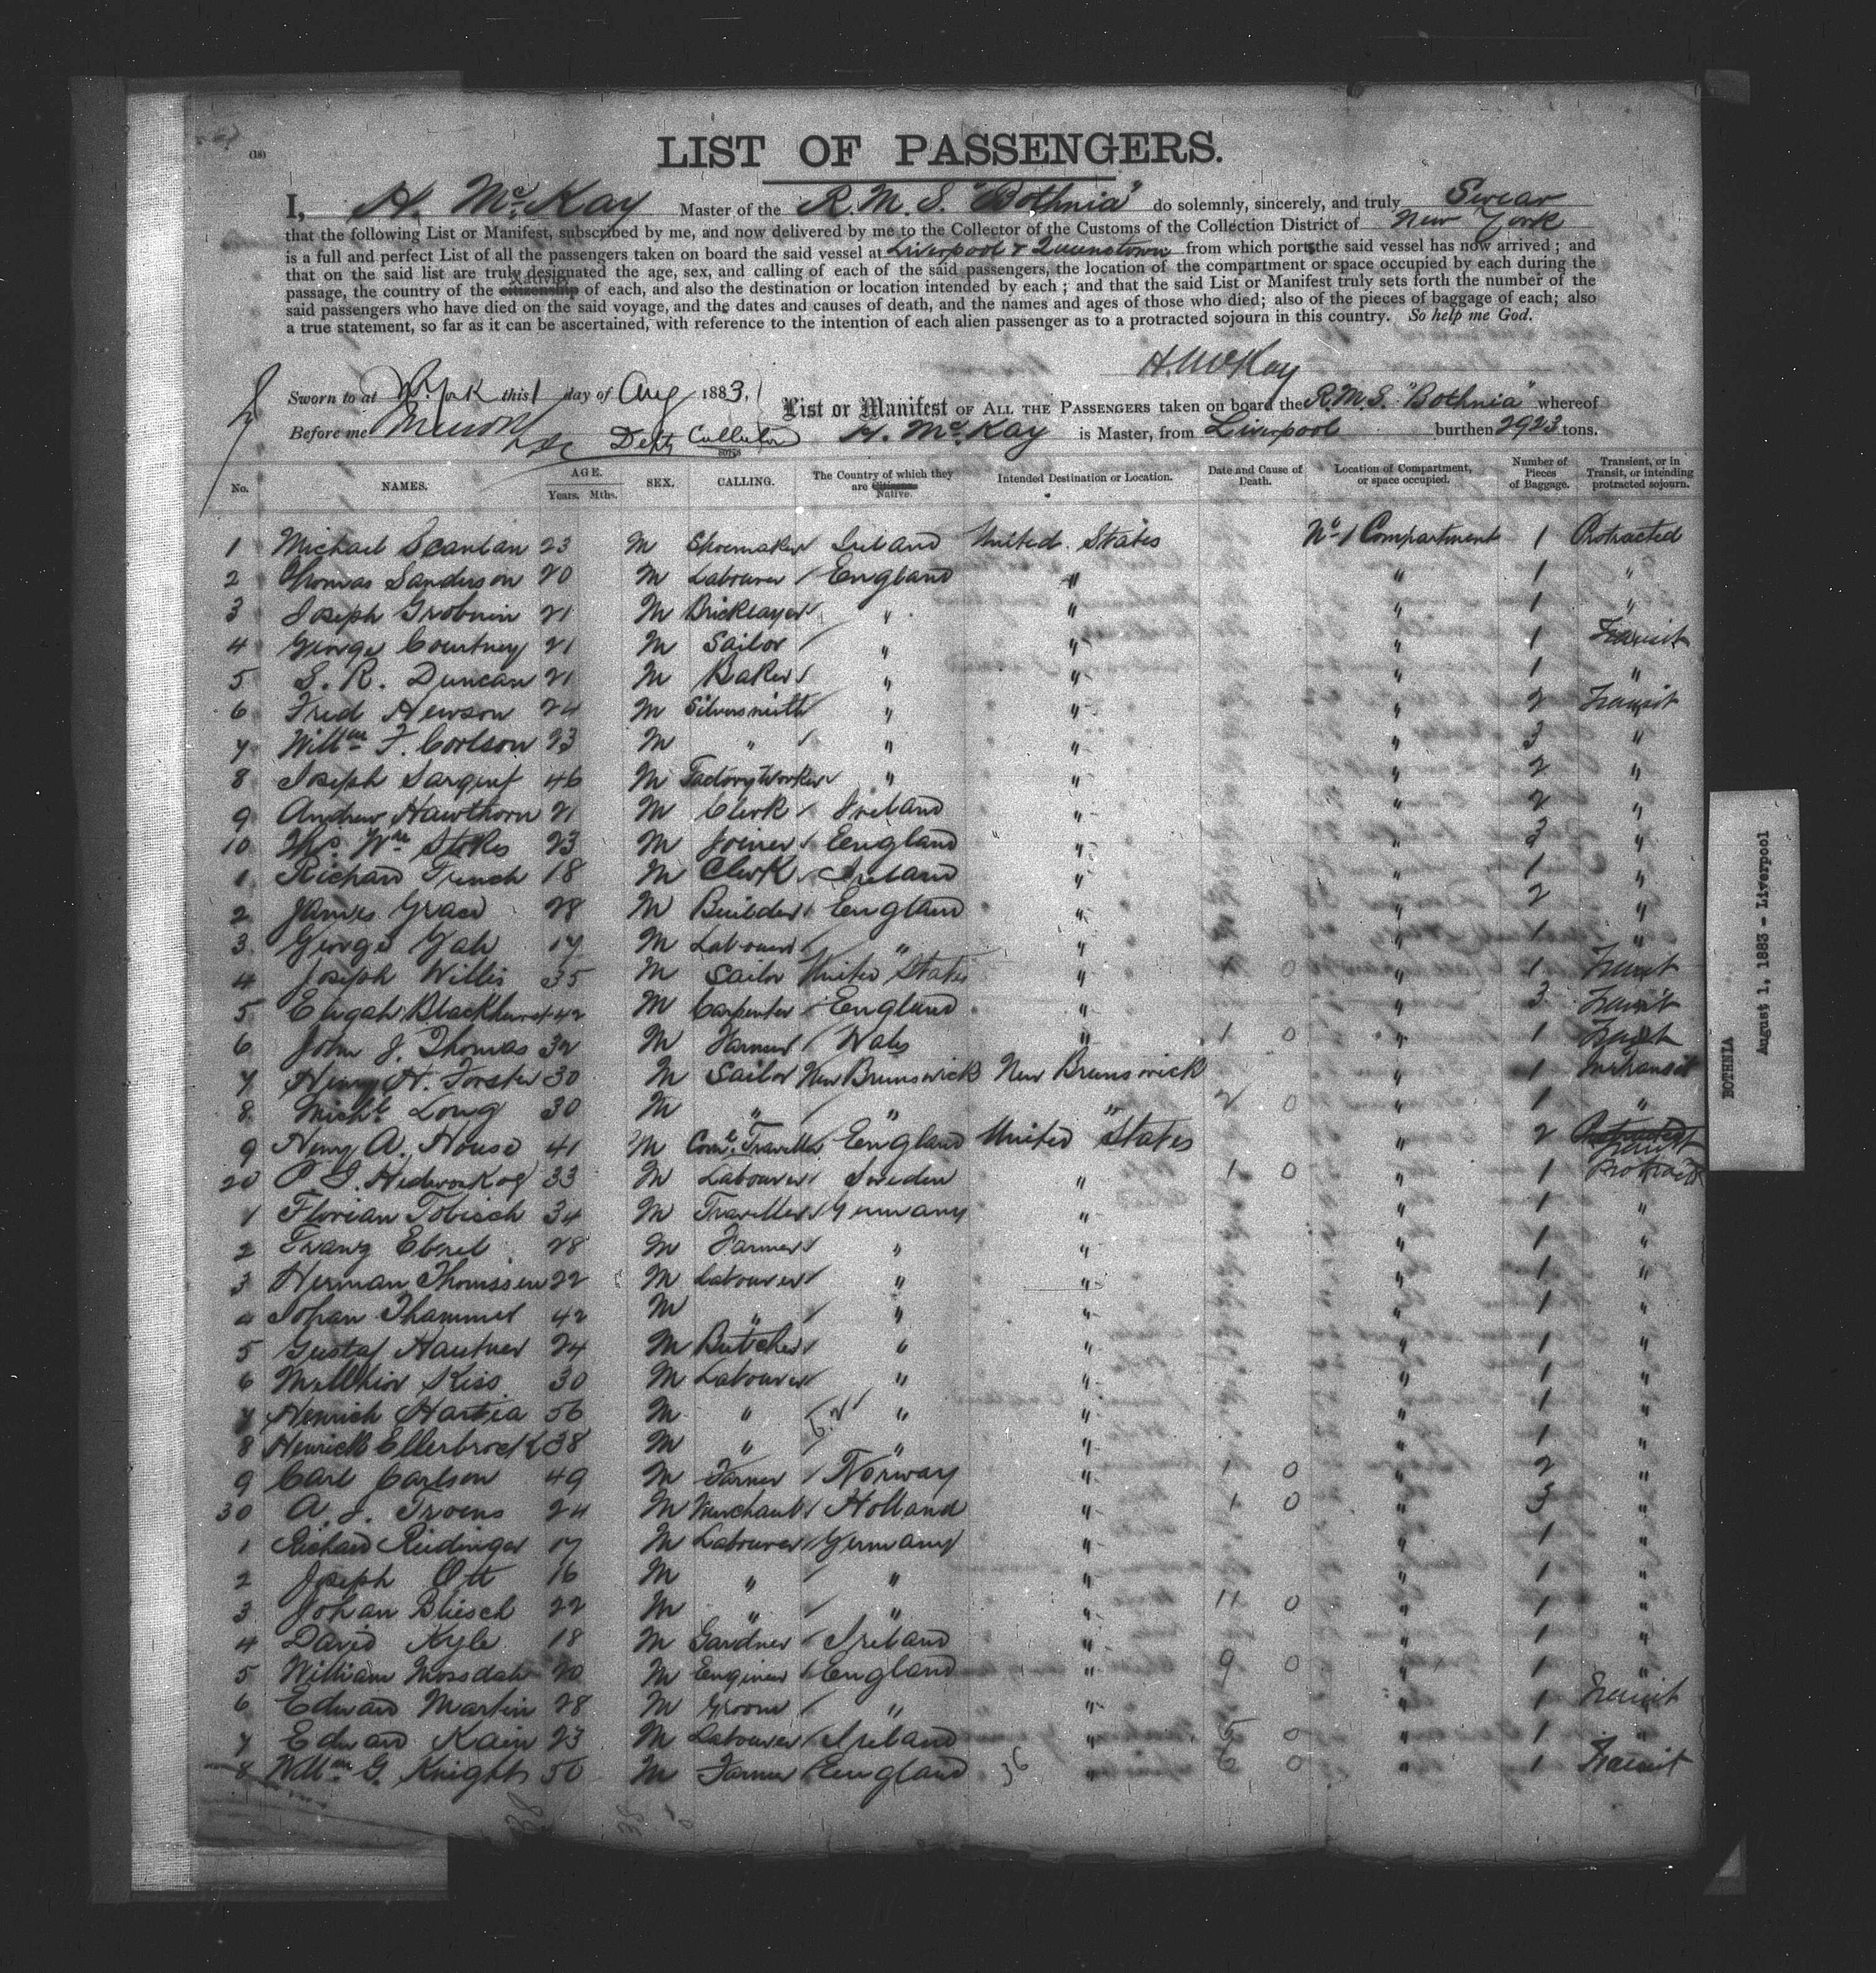 (18)
LIST OF PASSENGERS.
I, H. McKay Master of the R.M.S. "Bothnia" do solemnly, sincerely, and truly Swear
that the following List or Manifest, subscribed by me, and now delivered by me to the Collector of the Customs of the Collection District of New York
is a full and perfect List of all the passengers taken on board the said vessel at Liverpool & Queenstown from which ports the said vessel has now arrived; and
that on the said list are truly designated the age, sex, and calling of each of the said passengers, the location of the compartment or space occupied by each during the
passage, the country of the citizenship Native of each, and also the destination or location intended by each; and that the said List or Manifest truly sets forth the number of the
said passengers who have died on the said voyage, and the dates and causes of death, and the names and ages of those who died; also of the pieces of baggage of each; also
a true statement, so far as it can be ascertained, with reference to the intention of each alien passenger as to a protracted sojourn in this country. So help me God.
H. McKay
Sworn to at N. York this 1 day of Aug 1883,
Before me Depty Collector
List or Manifest OF ALL THE PASSENGERS taken on board the R.M.S. "Bothnia" whereof
H. McKay is Master, from Liverpool burthen 2923 tons.
No. NAMES. AGE. Years. Mths. SEX. CALLING. The Country of which they are Citizens Native. Intended Destination or Location. Date and Cause of Death. Location of Compartment, or space occupied. Number of Pieces of Baggage. Transient, or in Transit, or intending protracted sojourn.
1 Michael Scanlan 23 M Shoemaker Ireland United States No 1 Compartment 1 Protracted
2 Thomas Sanderson 20 M Labourer England " " 1 "
3 Joseph 21 M Bricklayer " " " 1 "
4 George Courtney 21 M Sailor " " " 1 Transit
5 S. R. Duncan 21 M Baker " " " 1 "
6 Fred Hewson 24 M Silversmith " " " 2 Transit
7 Willm F. Coolson 23 M " " " " 3 "
8 Joseph Sargent 46 M Factory Worker " " " 2 "
9 Andrew Hawthorn 21 M Clerk Ireland " " 2 "
10 Thos Wm Stokes 23 M Joiner England " " 3 "
1 Richard French 18 M Clerk Ireland " " 1 "
2 James Grace 28 M Builder England " " 2 "
3 George 17 M Labourer " " " 1 "
4 Joseph Willis 35 M Sailor United States " 1 0 " 1 Transit
5 Elijah Blackhurst 42 M Carpenter England " " 3 Transit
6 John J. Thomas 32 M Farmer Wales " 1 0 " 1 Transit
7 Henry H. Forster 30 M Sailor New Brunswick New Brunswick " 1 In Transit
8 Michl Long 30 M " " " 2 0 " 1 "
9 Henry A. House 41 M Coml. Traveller England United States " 2 Protracted Transit
20 P. J. 33 M Labourer Sweden " 1 0 " 1 Protract
1 Florian Tobisch 34 M Traveller Germany " " 1 "
2 Franz Eberl 28 M Farmer " " " 1 "
3 Herman Thomssen 22 M Labourer " " " 1 "
4 Johan Thammel 42 M " " " " 1 "
5 Gustaf Hautner 24 M Butcher " " " 1 "
6 Melkior Kiss 30 M Labourer " " " 1 "
7 Henrich Hartia 56 M " " " " 1 "
8 Henrich Ellerbrock 38 M " " " " 1 "
9 Carl Carlson 49 M Farmer Norway " 1 0 " 2 "
30 A. J. Troens 24 M Merchant Holland " 1 0 " 3 "
1 Richard Reidinger 17 M Labourer Germany " " 1 "
2 Joseph Ott 16 M " " " " 1 "
3 Johan Bliesch 22 M " " " 11 0 " 1 "
4 David Kyle 18 M Gardner Ireland " " 1 "
5 William Mossdale 20 M Engineer England " 9 0 " 1 "
6 Edward Martin 28 M Groom " " " 1 Transit
7 Edward Kain 23 M Labourer Ireland " 5 0 " 1 "
8 Willm G. Knight 50 M Farmer England 36 " 6 0 " 1 Transit
BOTHNIA
August 1, 1883 - Liverpool